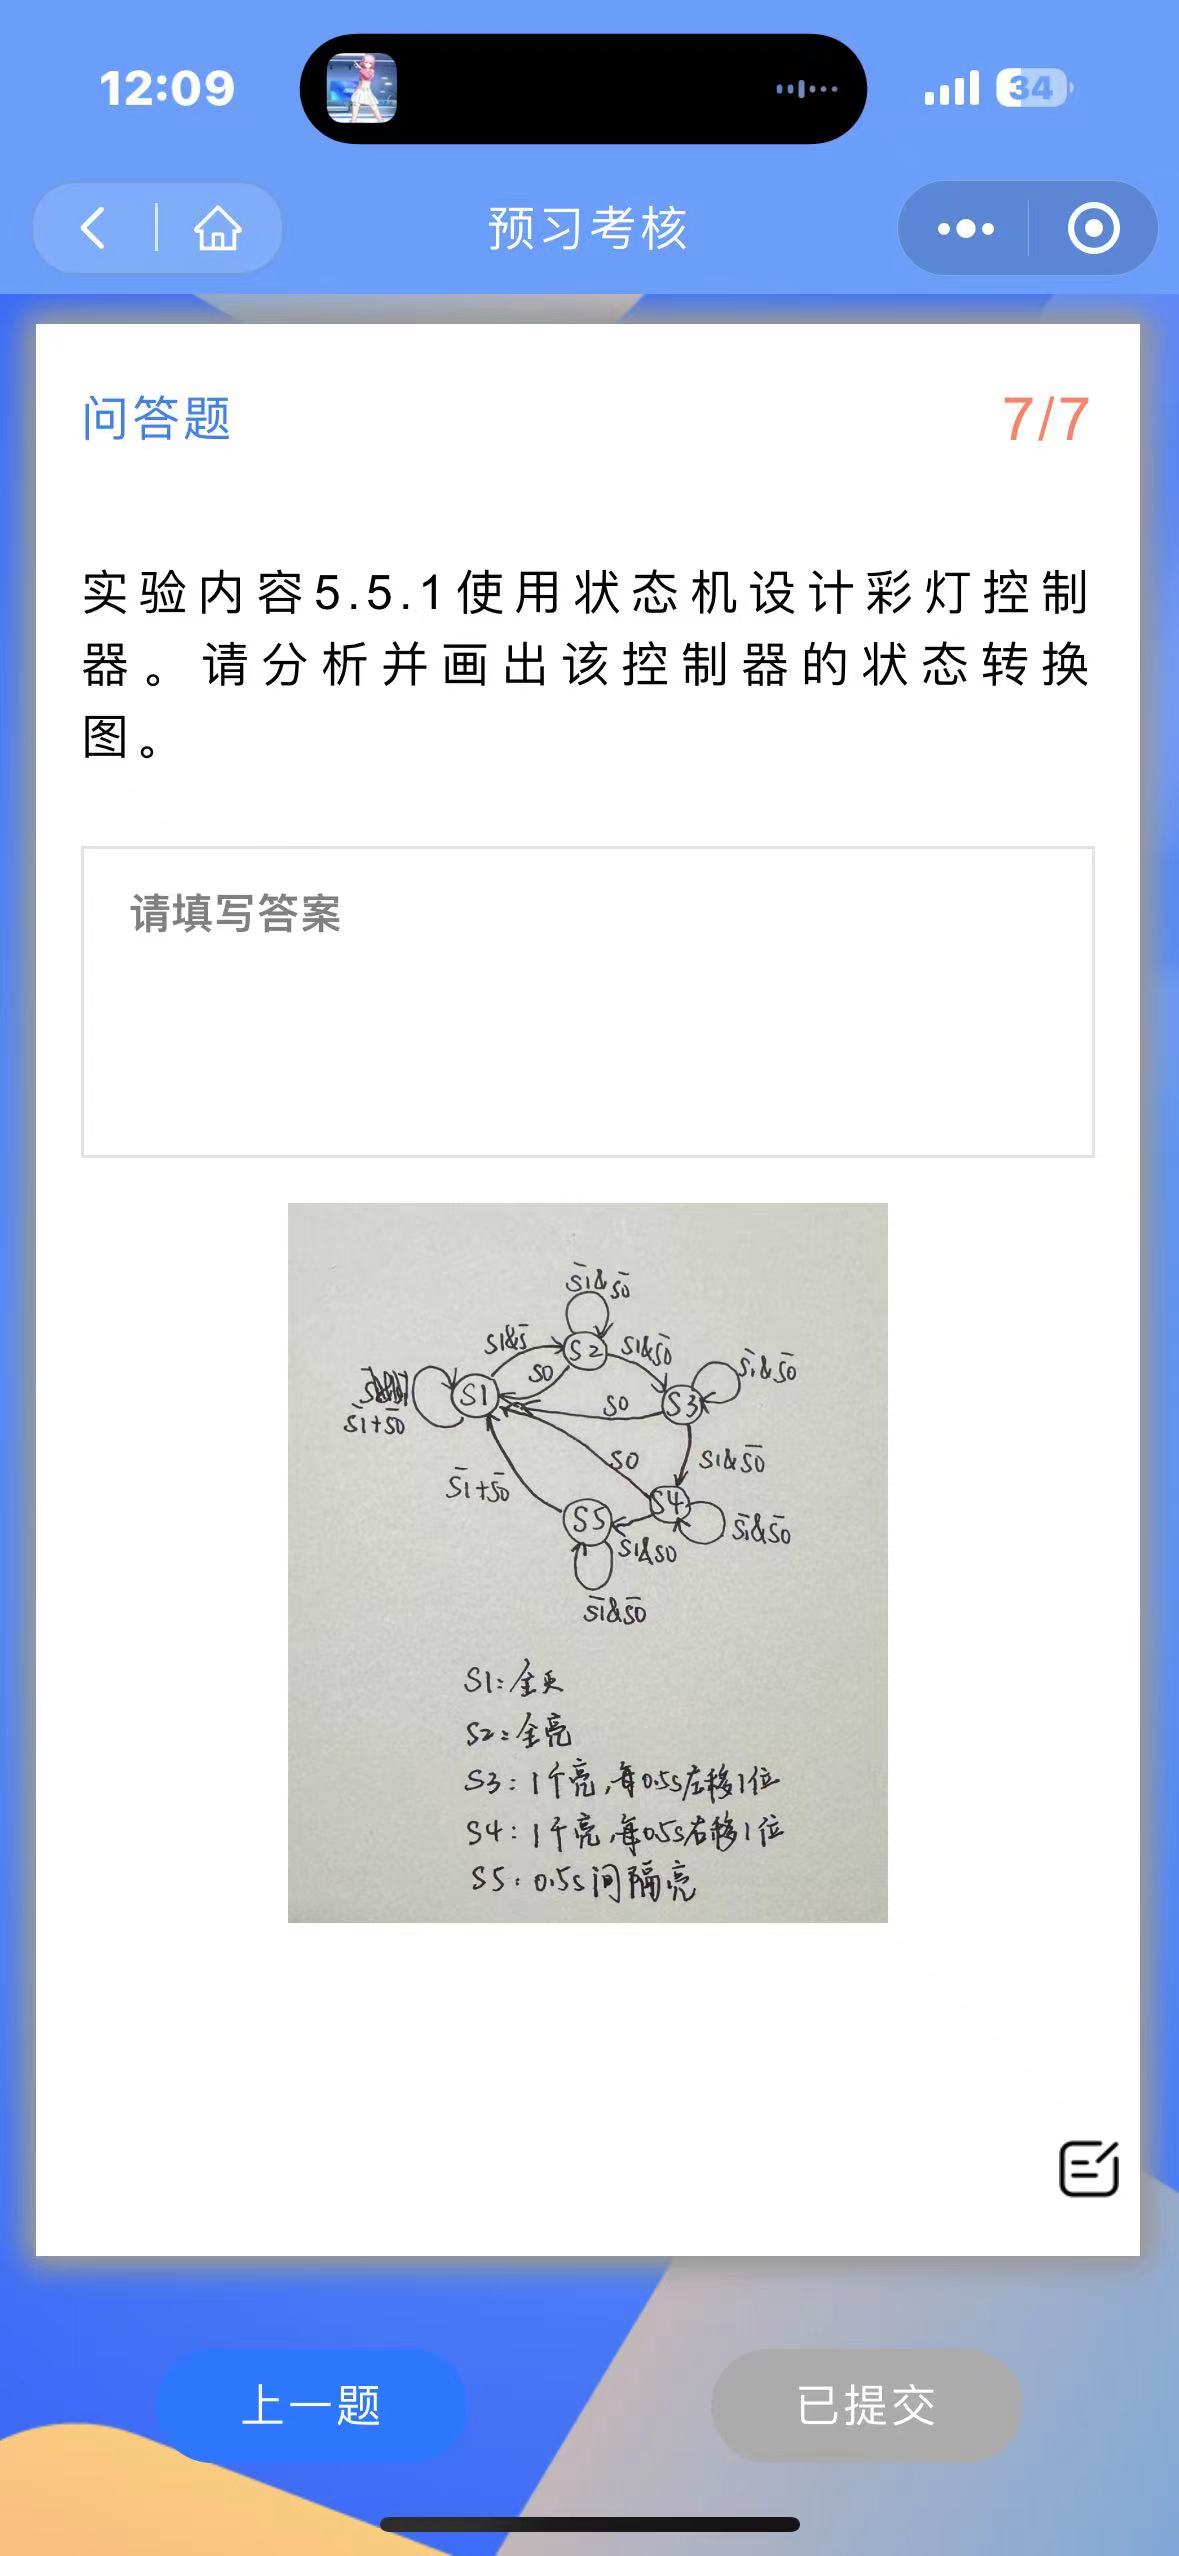 12:09
34
预习考核
问答题
7/7
实验内容5.5.1使用状态机设计彩灯控制
器。请分析并画出该控制器的状态转换
图。
请填写答案
S̄1&S̄0
S1&S̄
S2
S1&S̄0
S0
S̄1&S̄0
S1
S̄1+S̄0
S0
S3
S0
S1&S̄0
S̄1+S̄0
S4
S5
S̄1&S̄0
S1&S0
S̄1&S̄0
S1:全灭
S2:全亮
S3:1个亮,每0.5s左移1位
S4:1个亮,每0.5s右移1位
S5:0.5s间隔亮
上一题
已提交